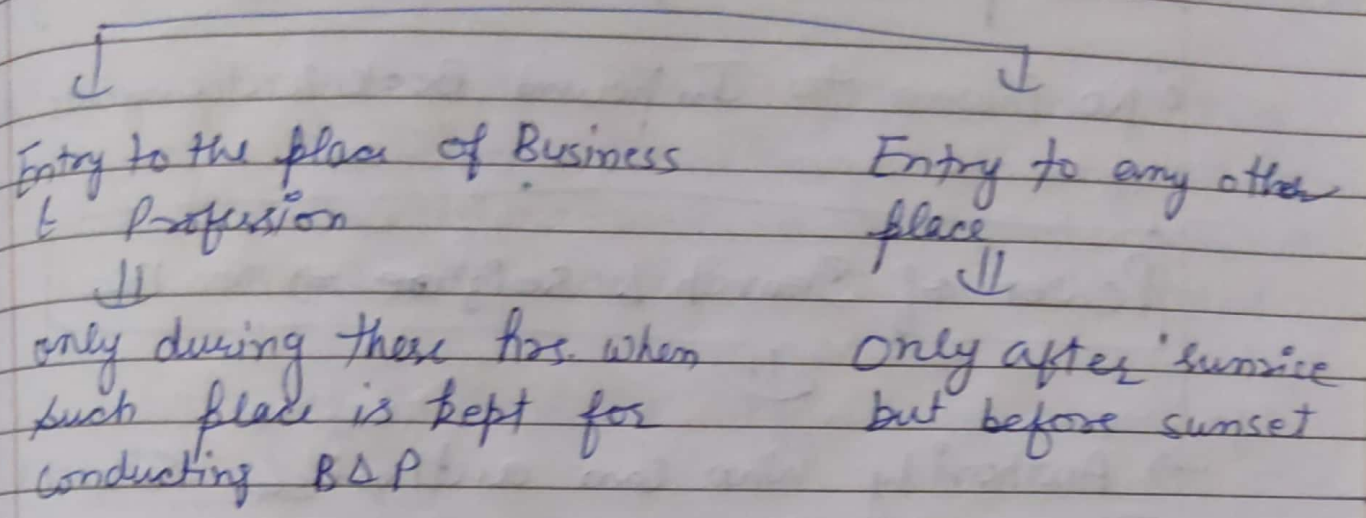 Entry to the place of Business
& Profession
only during these hrs. when
such place is kept for
conducting B&P
Entry to any other
place
Only after sunrice
but before sunset